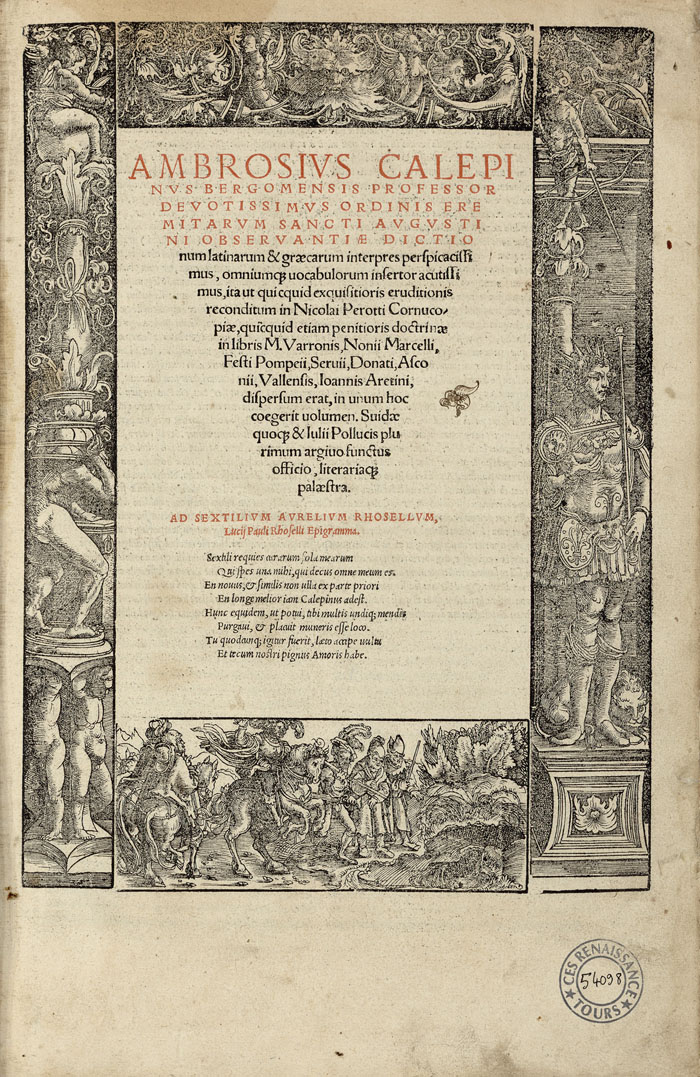 AMBROSIVS CALEPI
NVS BERGOMENSIS PROFESSOR
DEVOTISSIMVS ORDINIS ERE
MITARVM SANCTI AVGVSTI
NI OBSERVANTIÆ DICTIO
num latinarum & græcarum interpres perspicacissi
mus, omniumqꝫ uocabulorum insertor acutissi
mus, ita ut quicquid exquisitioris eruditionis
reconditum in Nicolai Perotti Cornuco-
piæ, quicquid etiam penitioris doctrinæ
in libris M. Varronis, Nonii Marcelli,
Festi Pompeii, Seruii, Donati, Asco
nii, Vallensis, Ioannis Aretini,
dispersum erat, in unum hoc
coegerit uolumen. Suidæ
quoqꝫ & Iulii Pollucis plu
rimum argiuo functus
officio, literariaqꝫ
palæstra.
AD SEXTILIVM AVRELIVM RHOSELLVM,
Lucij Pauli Rhoselli Epigramma.
Sextili requies curarum sola mearum
Qui spes una mihi, qui decus omne meum es.
En nouus, & similis non ulla ex parte priori
En longe melior iam Calepinus adest.
Hunc equidem, ut potui, tibi multis undiqꝫ mendis
Purgaui, & placuit muneris esse loco.
Tu quodcunqꝫ igitur fuerit, læto accipe uultu
Et tecum nostri pignus Amoris habe.
CES RENAISSANCE
54098
TOURS